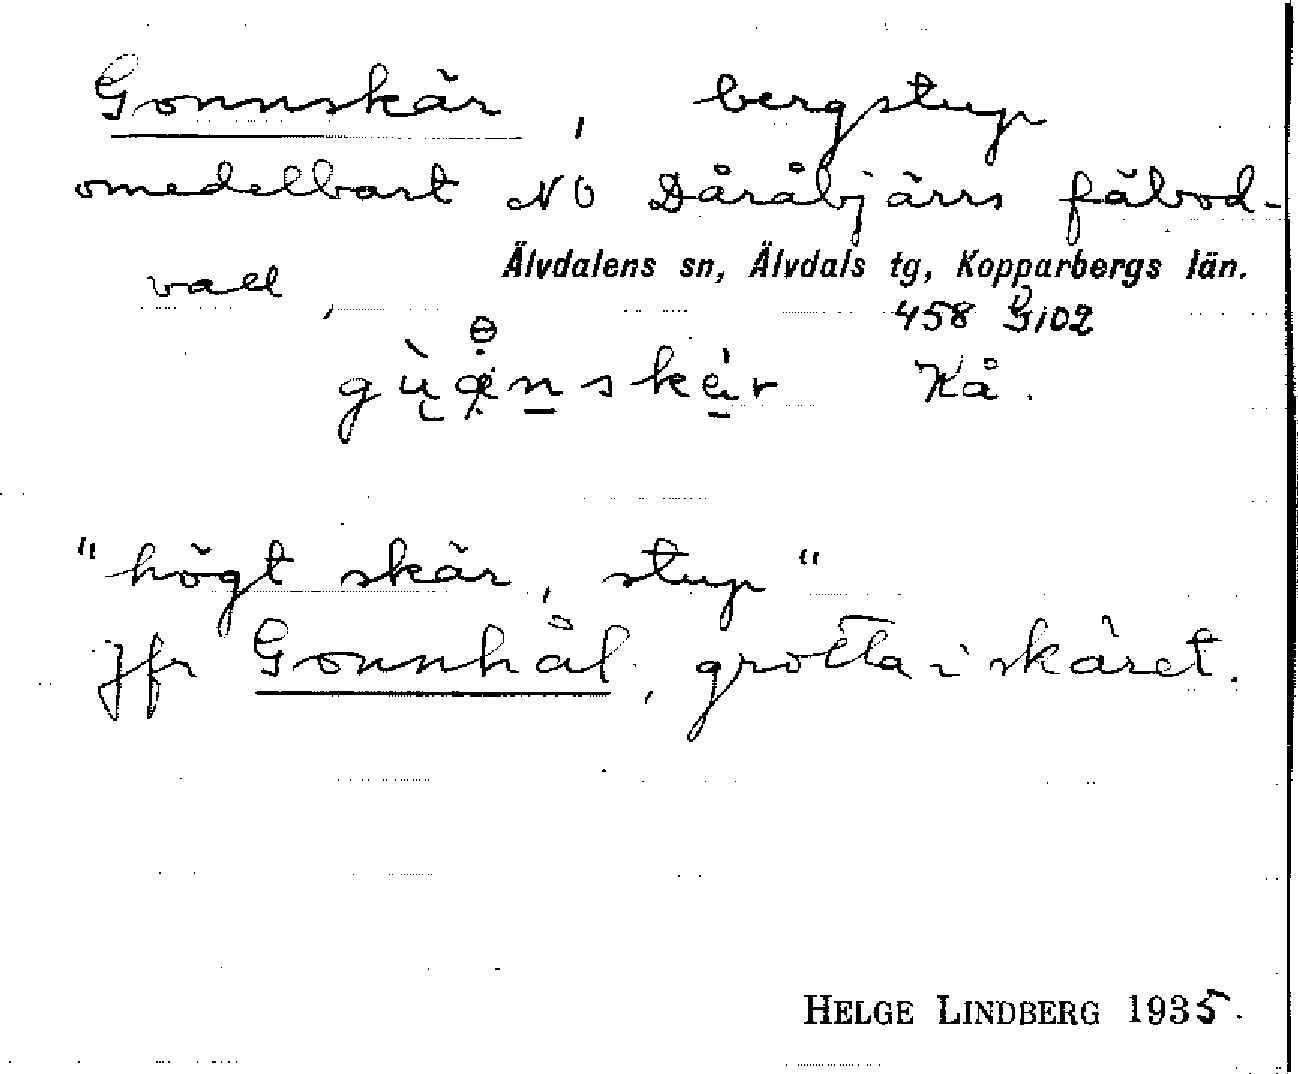 Gonnskär, bergstup
omedelbart NO Dåråbjärrs fäbod-
vall,
Älvdalens sn, Älvdals tg, Kopparbergs län.
458 G102
Kå.
"högt skär, stup"
Jfr Gonnhål, grotta i skäret.
HELGE LINDBERG 1935.